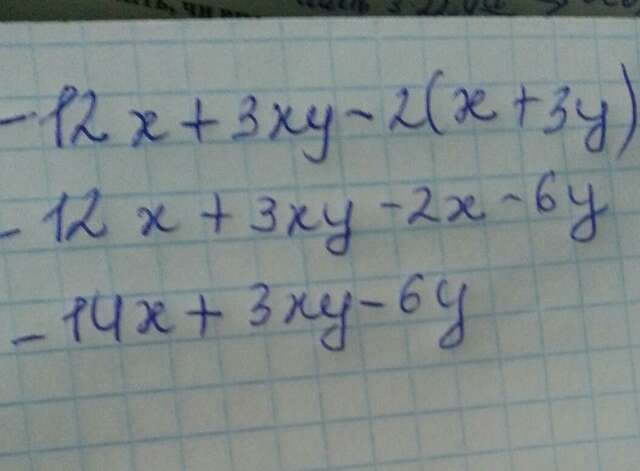 -12x + 3xy - 2(x + 3y)
-12x + 3xy - 2x - 6y
-14x + 3xy - 6y